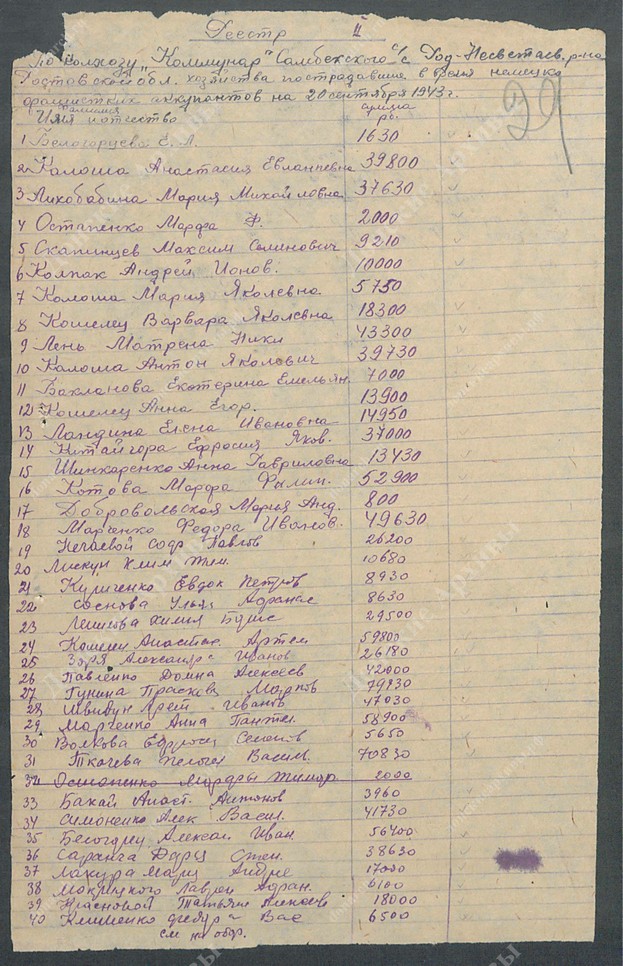 Реестр II
По колхозу "Коммунар" Самбекского с/с Род-Несветаев. р-на
Ростовской обл. хозяйства пострадавшие в время немецко
фашистких аккупантов на 20 сентября 1943 г.
Фамилия сумма
Имя отчество руб. 39
1 Белогорцева Е. Л. 1630
2 Калоша Анастасия Евлампевна 39800
3 Лихобабина Мария Михайловна 37630
4 Остапенко Марфа Ф. 2000
5 Скапинцев Максим Семинович 9210
6 Колпак Андрей Ионов. 10000
7 Калоша Мария Яколевна 5750
8 Кошелец Варвара Яколевна 18300
9 Лень Матрена Ники 43300
10 Калоша Антон Яколевич 39730
11 Бакланова Екотерина Емельян. 7000
12 Кошелец Анна Егор. 13900
13 Ландина Елена Ивановна 14950
14 Китайгора Ефросия Яков. 37000
15 Шинкаренко Анна Гавриловна 13430
16 Котова Марфа Филип. 52900
17 Добровольская Мария Анд. 800
18 Марченко Федора Иванов. 49630
19 Нечаевой Павлов 26200
20 Лискун Клим Тим. 10680
21 Куличенко Евдок Петров 8930
22 Соснова Ульян 8630
23 29500
24 Артем 59800
25 Заря Александра Иванов 26180
26 Павленко Домна Алексеев 42000
27 Гунина Прасков Марков 79930
28 Швидун Иванов 47030
29 Марченко Анна Пантел. 58900
30 Волкова Ефроси Семенов 5650
31 Ткачева Пелогея Васил. 70830
32 Остапенко Марфы Тимоф. 2000
33 Бахай Анаст. Антонов 3960
34 Симоненко Алек Васил. 41730
35 Алексан Иван 56400
36 Саранча Дарья 38630
37 Лакура Мария Андре 17000
38 Мокрицкого Лаврен 6100
39 Красновой Татьяны Алексеев 18000
40 Клименко Федора Вас 6500
см на обор.